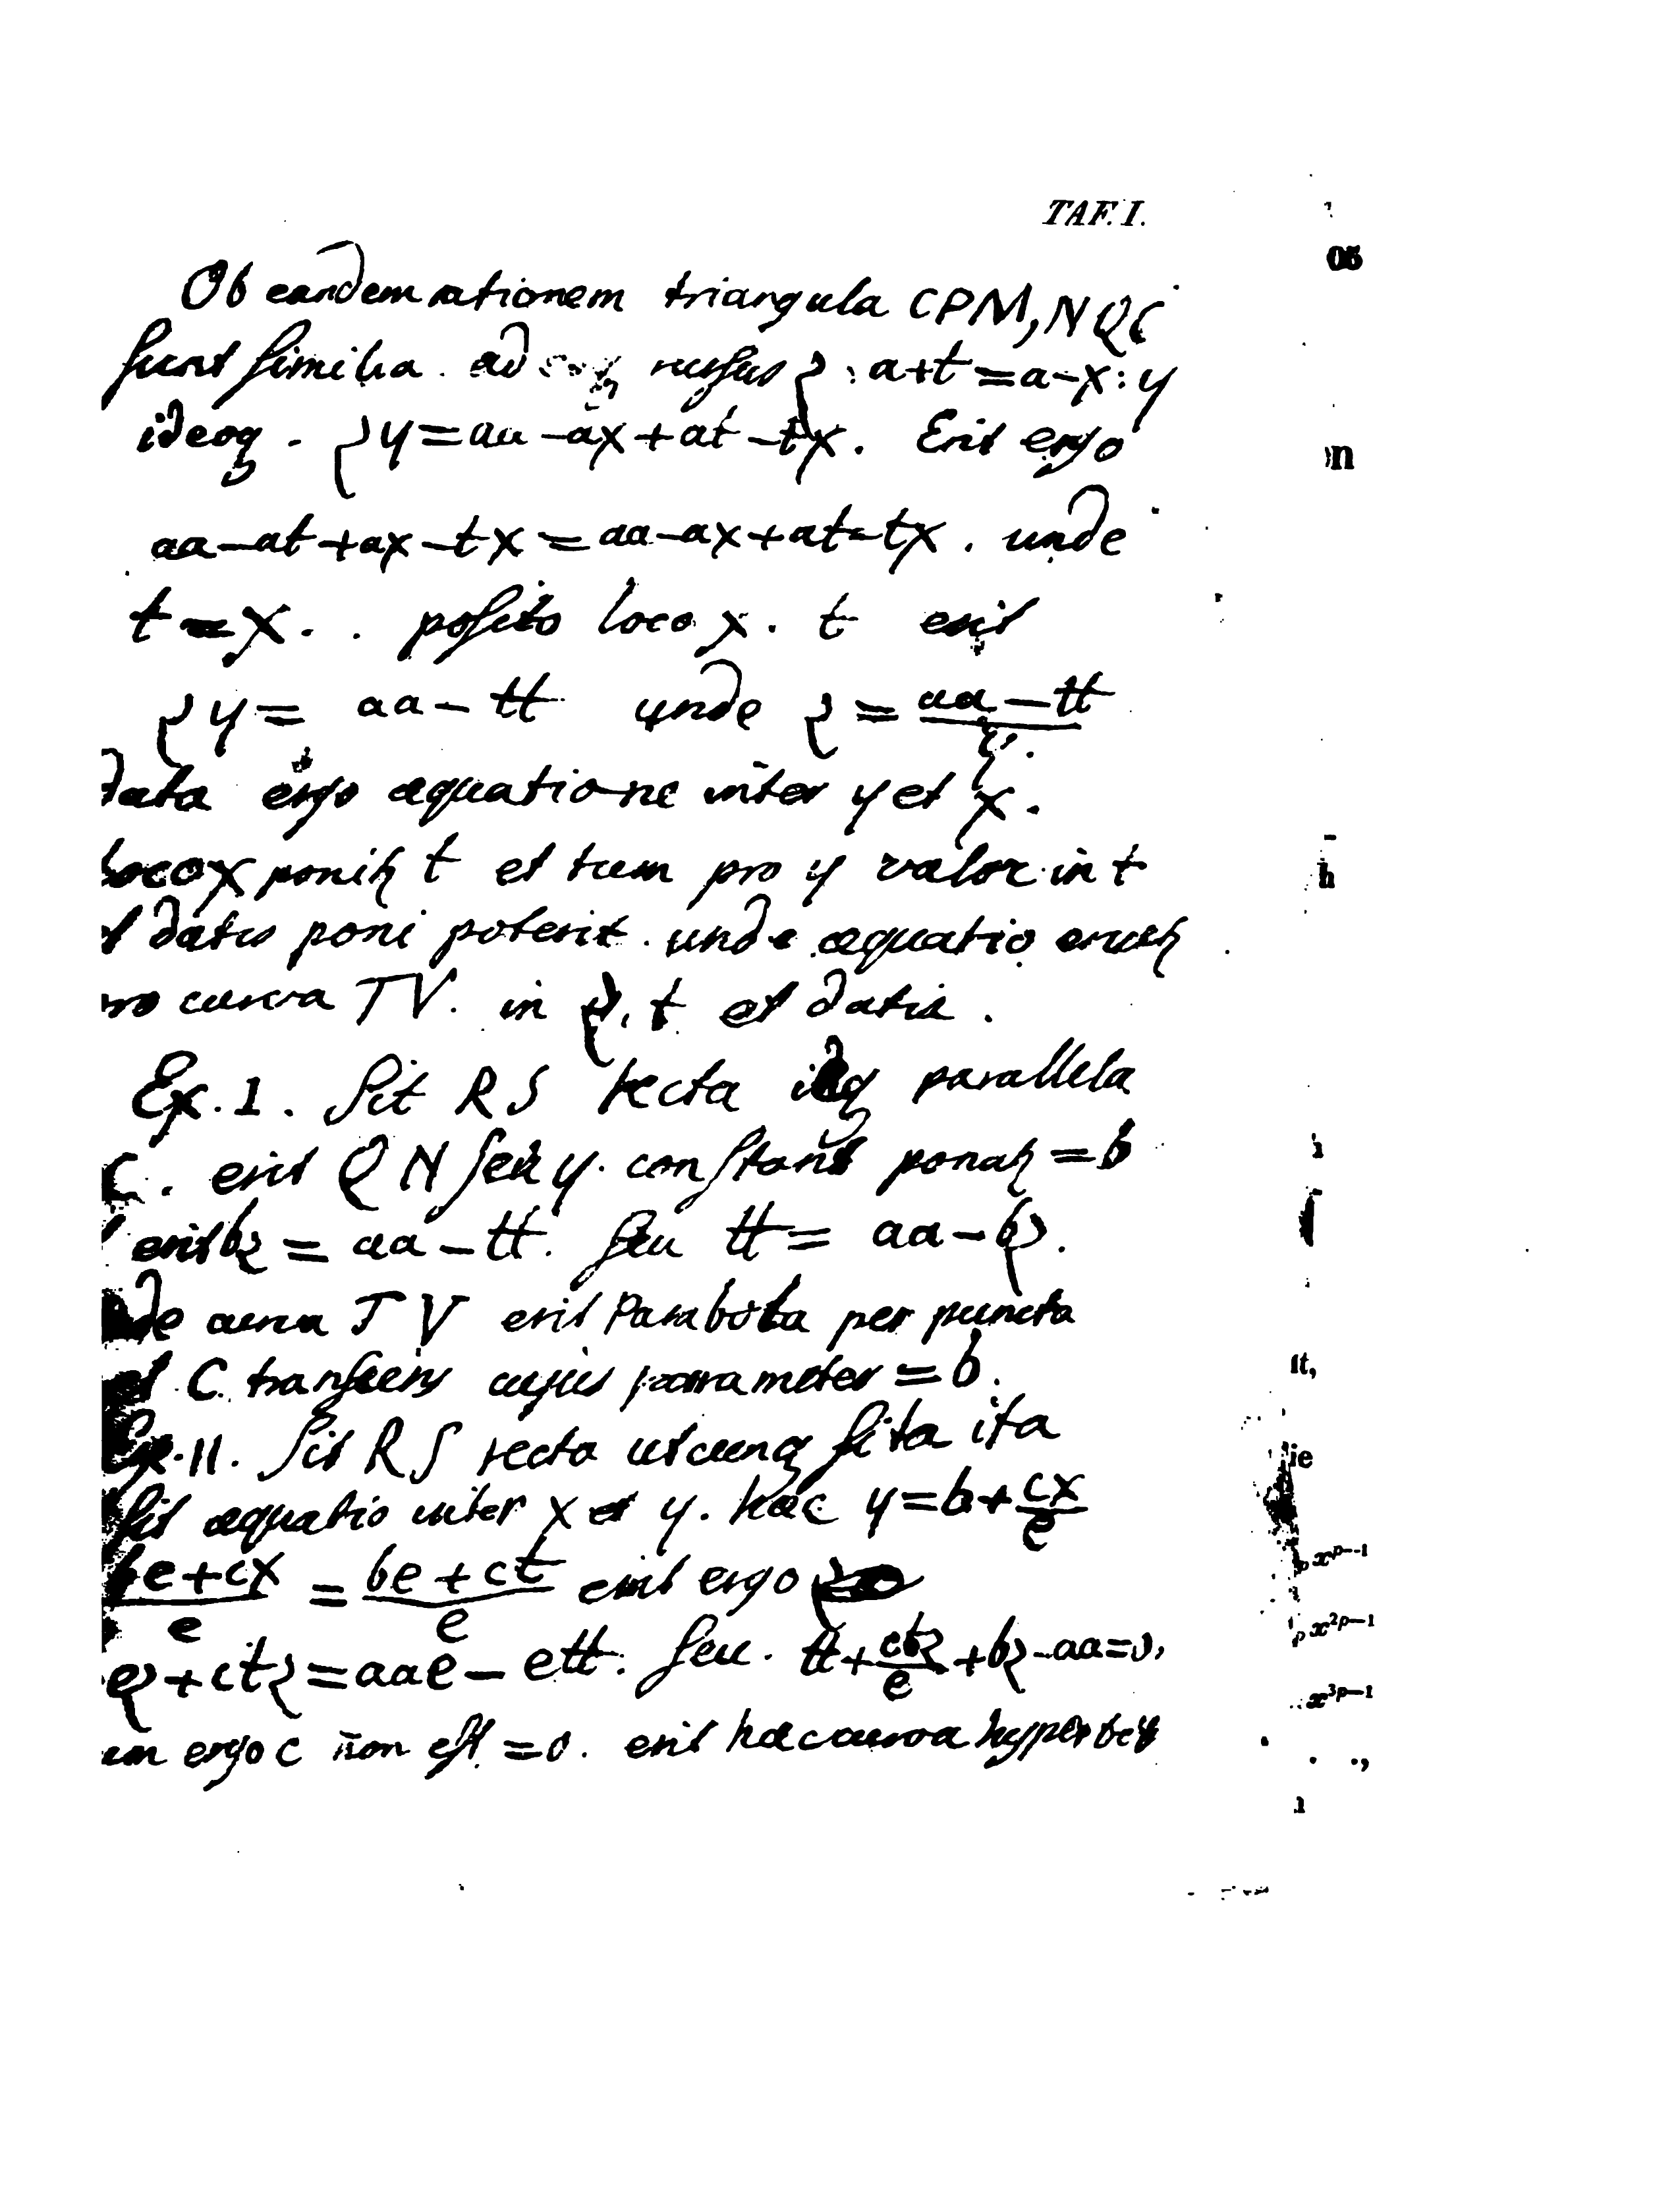 TAF. I.
05
Ob eandem rationem triangula CPM, NQC
sunt similia. ad rursus z : a+t = a-x : y
ideoq. zy = aa - ax + at - tx. Erit ergo
n
aa - at + ax - tx = aa - ax + at - tx. unde
t = x. . posito loco x. t erit
zy = aa - tt unde z = aa - tt / y.
data ergo æquatione inter y et x.
loco x t et tum pro y valor in t
h
et datis poni poterit. unde æquatio
pro curva TV. in z, t et datis.
Ex. 1. Sit RS recta parallela
C. erit QN seu y. constans = b
erit bz = aa - tt. seu tt = aa - bz.
unde curva TV erit Parabola per puncta
et C. transiens cujus parameter = b.
it,
Ex. II. Sit RS recta utcunq sita ita
ie
sit æquatio inter x et y. hæc y = b + cx/e
be+cx / e = be+ct / e erit ergo
x^{p-1}
x^{2p-1}
ez + ctz = aae - ett. seu. tt + ctz/e + bz - aa = 0,
x^{3p-1}
ergo c non est = 0. erit hæc curva